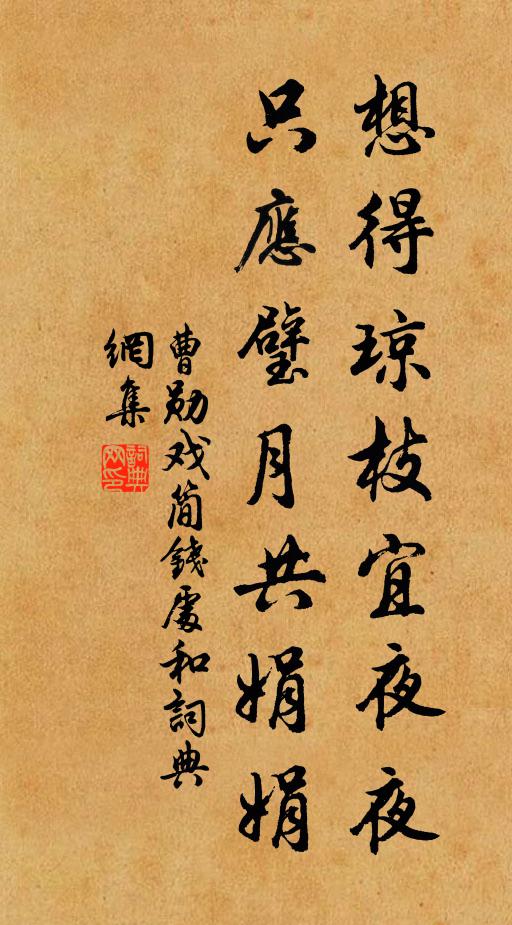 想得琼枝宜夜夜
只應璧月共娟娟
曹勋戏简錢處和詞典
網集
詞典
网印